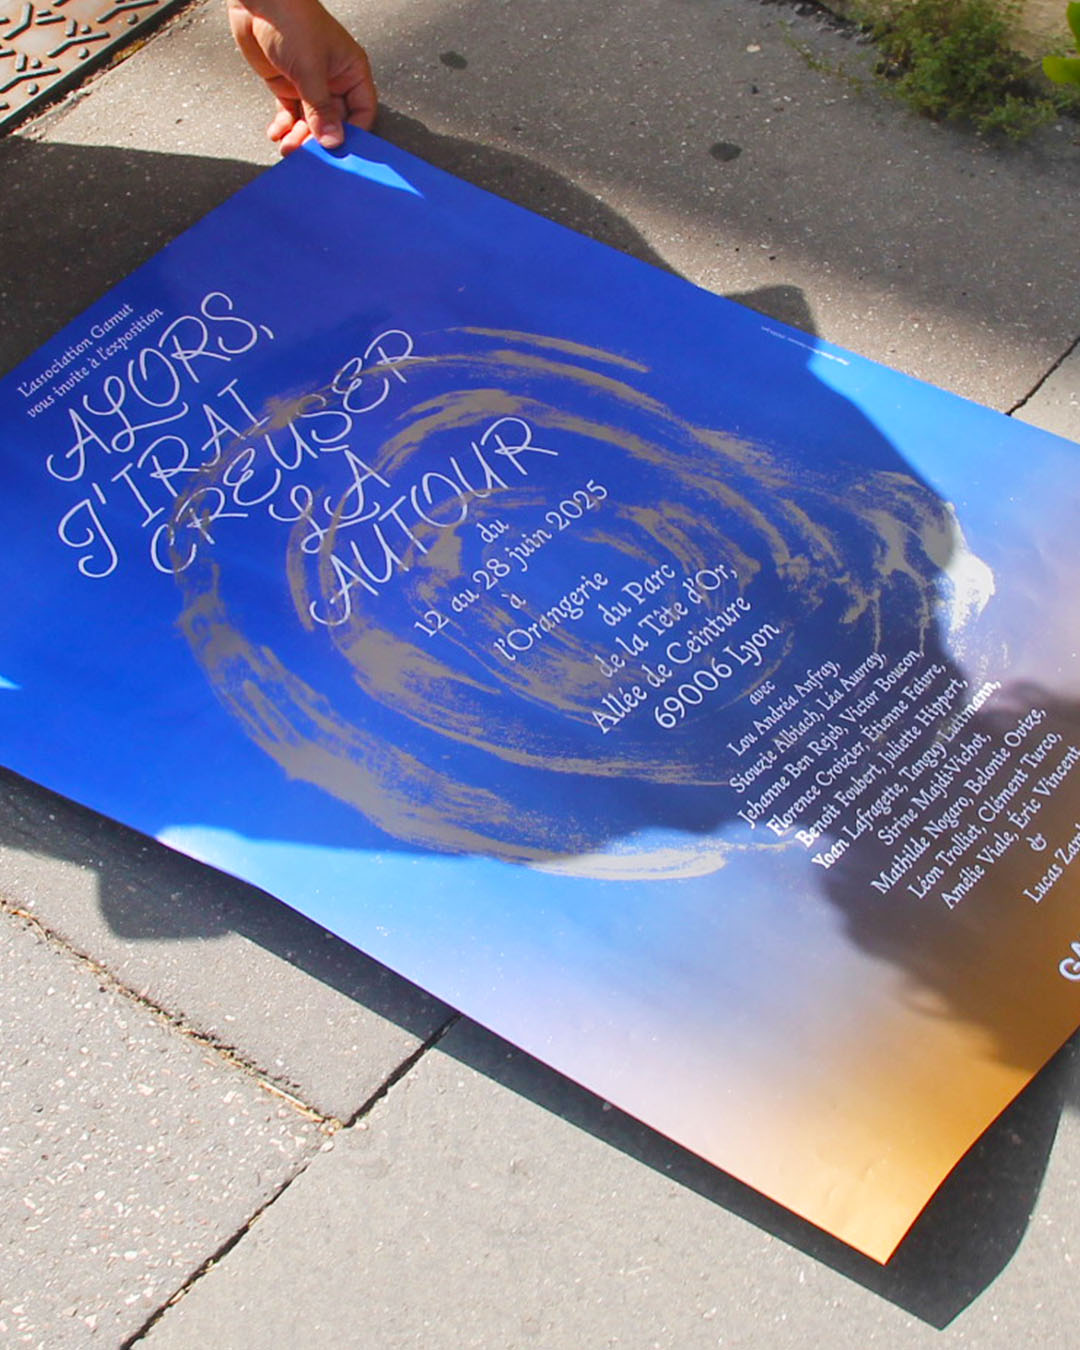 L'association Gamut
vous invite à l'exposition
ALORS,
J'IRAI
CREUSER
LÀ
AUTOUR
du
12 au 28 juin 2025
à
l'Orangerie
du Parc
de la Tête d'Or,
Allée de Ceinture
69006 Lyon
avec
Lou Andréa Anfray,
Siouzie Albiach, Léa Auvray,
Jehanne Ben Rejeb, Victor Boucon,
Florence Croizier, Étienne Faivre,
Benoît Foubert, Juliette Hippert,
Yoan Lafragette, Tanguy Luttmann,
Sirine Majdi-Vichot,
Mathilde Nogero, Belonie Ovize,
Léon Trolliet, Clément Turco,
Amélie Viale, Eric Vincent
&
Lucas